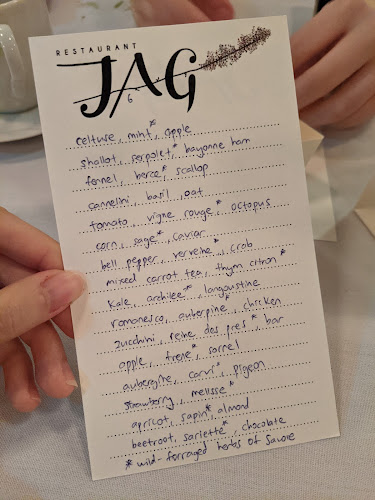 RESTAURANT
JAG
celtuce, mint*, apple
shallot, serpolet*, bayonne ham
fennel, berce*, scallop
cannelini, basil, oat
tomato, vigne rouge*, octopus
corn, sage*, caviar
bell pepper, verveine*, crab
mixed carrot tea, thym citron*
kale, archilee*, langoustine
romanesco, auberpine*, chicken
zucchini, reine des pres*, bar
apple, trefle*, sorrel
aubergine, carvi*, pigeon
strawberry, melisse*
apricot, sapin*, almond
beetroot, sariette*, chocolate
* wild-forraged herbs of Savoie